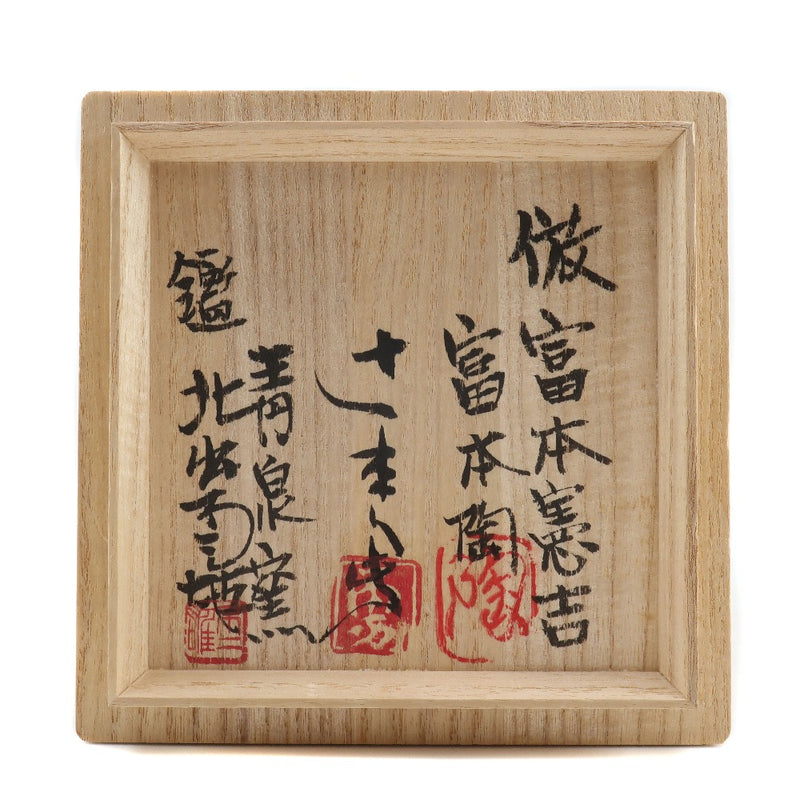 倣富本憲吉
富本陶
辻本
青泉窯
北出不二雄
鑑
陶